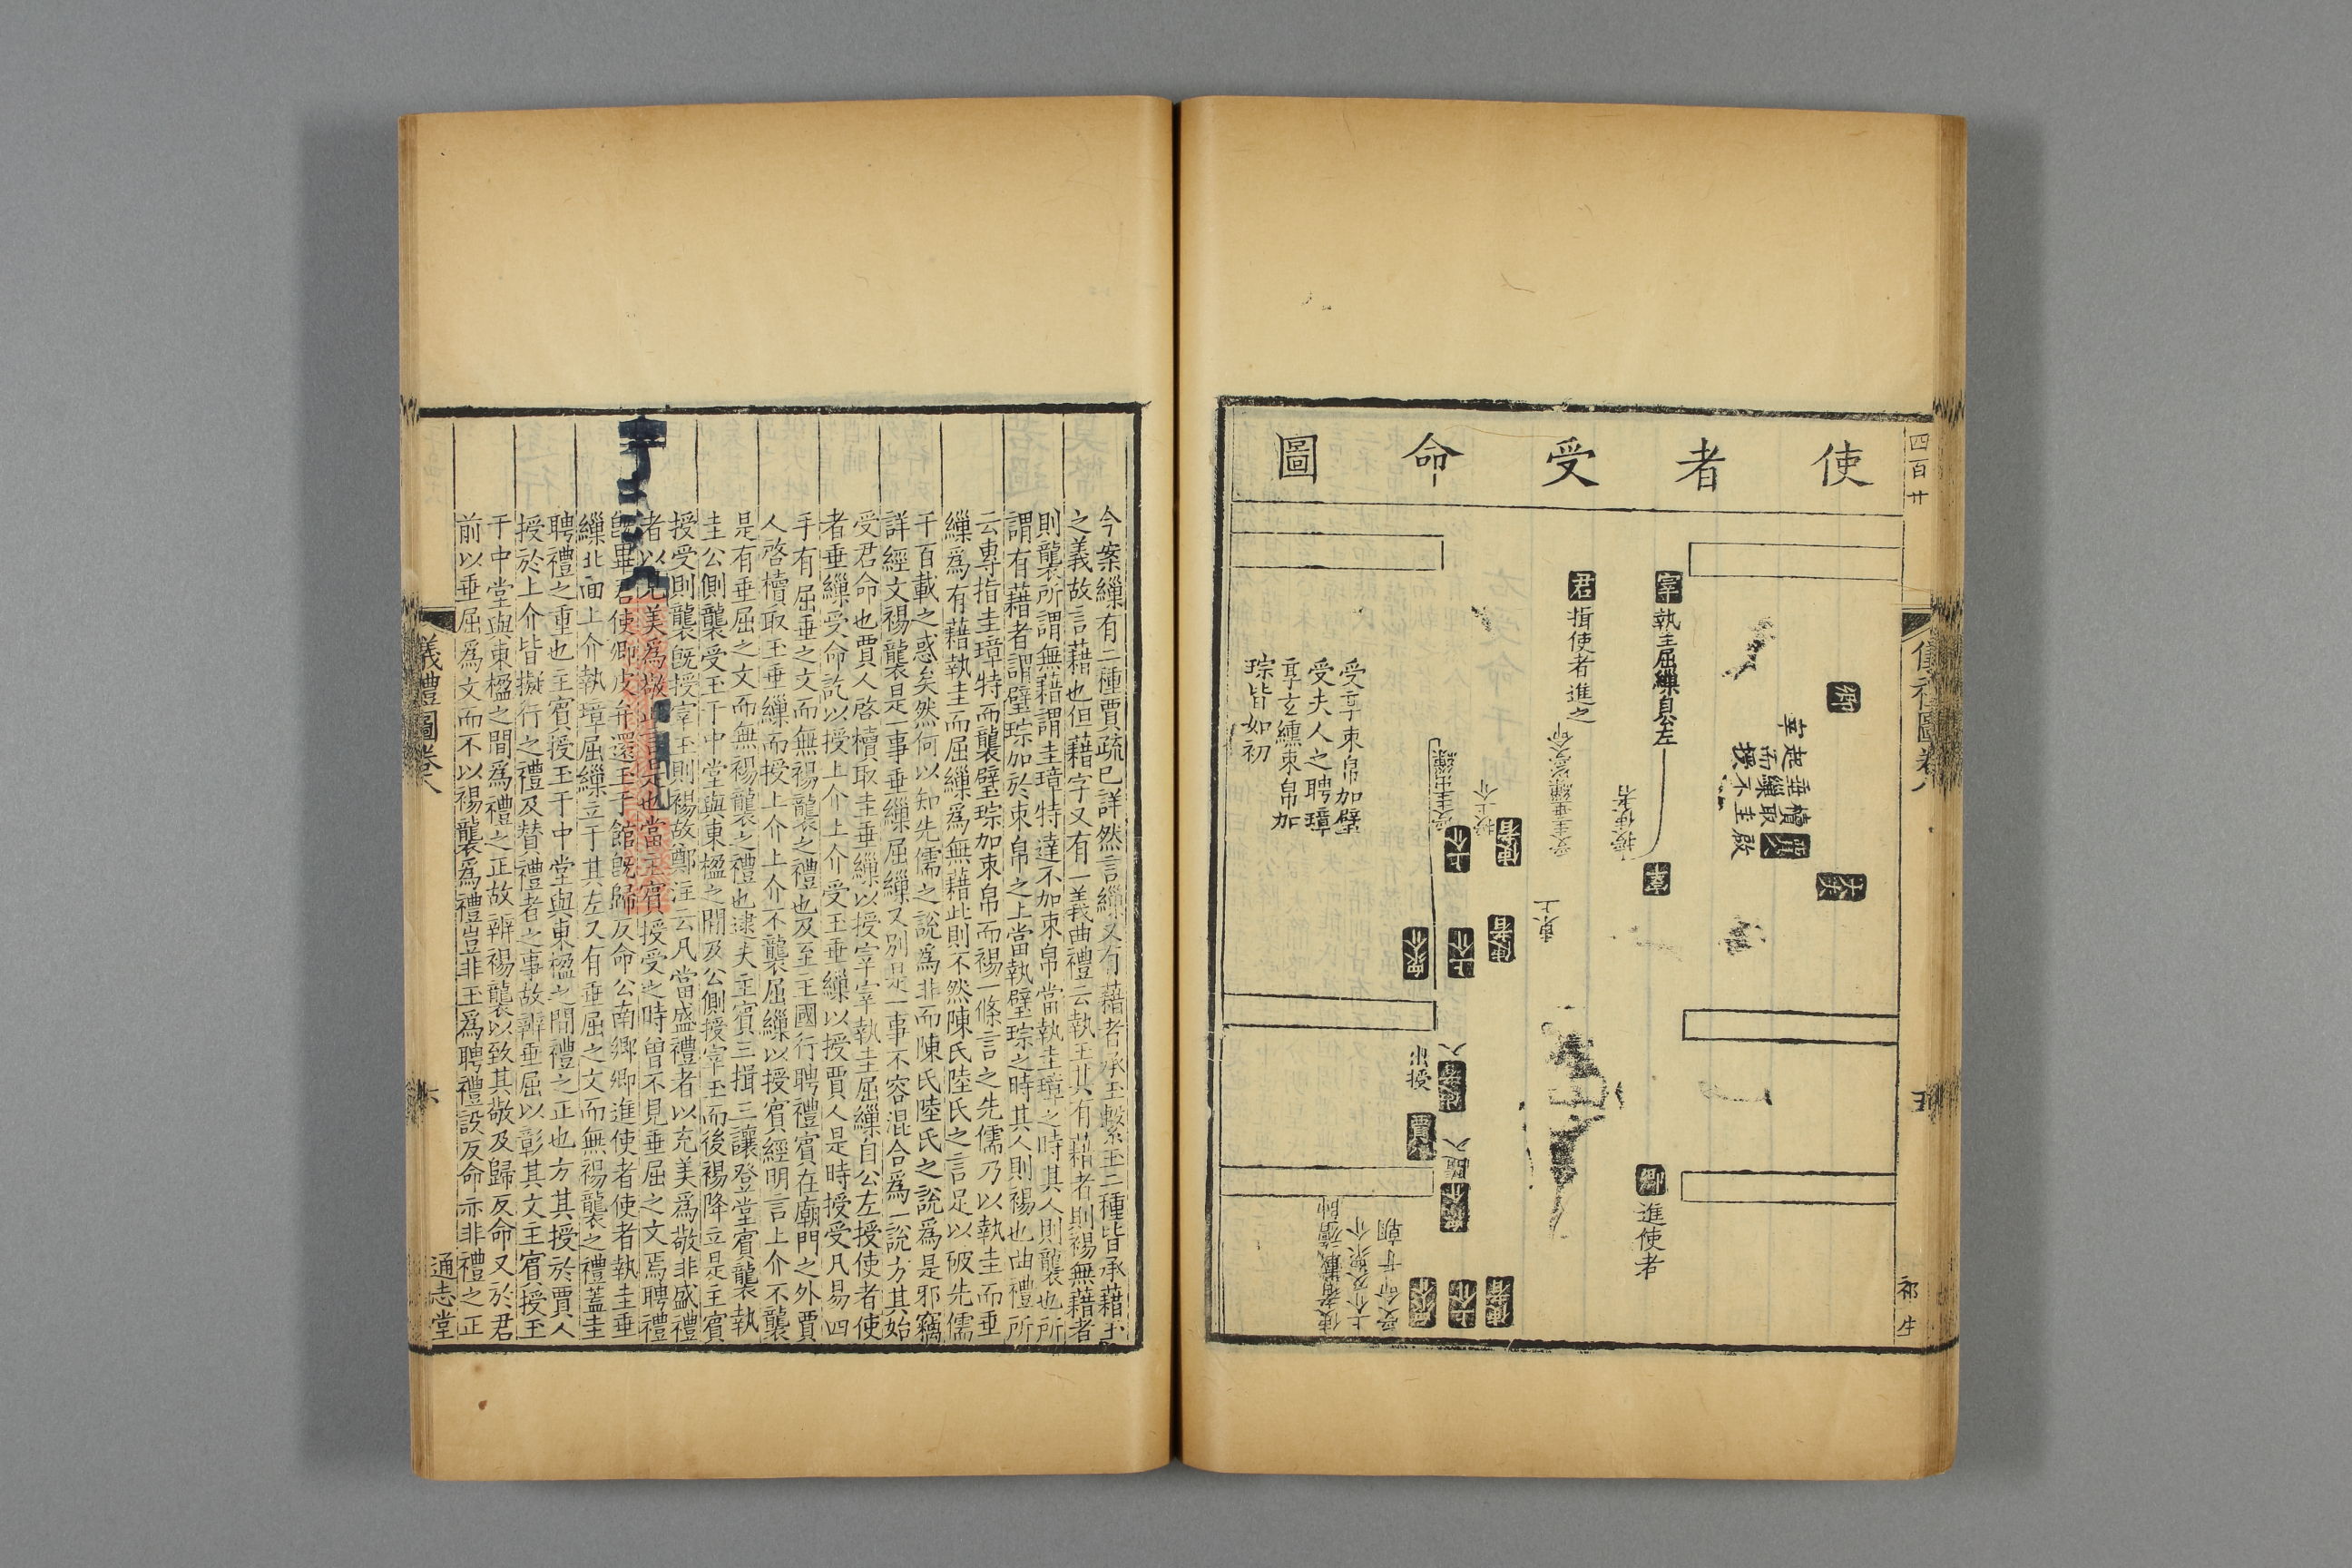 四百廿
儀禮圖卷八
五
祁生
使者受命圖
卿
宰
起而授
垂繅不
櫝取圭
賈
啟
大夫
宰
執圭屈繅自公左
授使者
宰
卿
進使者
君
揖使者進之
受圭垂繅以受命
東上
使者
使者
使者
授上介
上介
上介
上介
受圭屈繅
衆介
衆介
入
使者
出授
賈人
受命于朝
上介及衆介
使者載旜帥
受享束帛加璧
受夫人之聘璋
享玄纁束帛加
琮皆如初
今案繅有二種賈疏已詳然言繅又有藉者承玉繫玉二種皆承藉玉
之義故言藉也但藉字又有一義曲禮云執玉其有藉者則裼無藉者
則襲所謂無藉謂圭璋特達不加束帛當執圭璋之時其人則襲也所
謂有藉者謂璧琮加於束帛之上當執璧琮之時其人則裼也曲禮所
云專指圭璋特而襲璧琮加束帛而裼一條言之先儒乃以執圭而垂
繅爲有藉執圭而屈繅爲無藉此則不然陳氏陸氏之言足以破先儒
千百載之惑矣然何以知先儒之說爲非而陳氏陸氏之說爲是邪竊
詳經文裼襲是一事垂繅屈繅又別是一事不容混合爲一說方其始
受君命也賈人啓櫝取圭垂繅以授宰宰執圭屈繅自公左授使者使
者垂繅受命訖以授上介上介受玉垂繅以授賈人是時授受凡易四
手有屈垂之文而無裼襲之禮也及至主國行聘禮賓在廟門之外賈
人啓櫝取玉垂繅而授上介上介不襲屈繅以授賓經明言上介不襲
是有垂屈之文而無裼襲之禮也逮夫主賓三揖三讓登堂賓襲執
圭公側襲受玉于中堂與東楹之間及公側授宰玉而後裼降立是主賓
授受則襲旣授宰玉則裼故鄭注云凡當盛禮者以充美爲敬非盛禮
者以見美爲敬正言是也當主賓授受之時曾不見垂屈之文焉聘禮
旣畢君使卿皮弁還玉于館旣歸反命公南鄉卿進使者使者執圭垂
繅北面上介執璋屈繅立于其左又有垂屈之文而無裼襲之禮蓋圭
聘禮之重也主賓授玉于中堂與東楹之間禮之正也方其授於賈人
授於上介皆擬行之禮及贊禮者之事故辨垂屈以彰其文主賓授玉
于中堂與東楹之間爲禮之正故辨裼襲以致其敬及歸反命又於君
前以垂屈爲文而不以裼襲爲禮豈非玉爲聘禮設反命亦非禮之正
儀禮圖卷八
六
通志堂